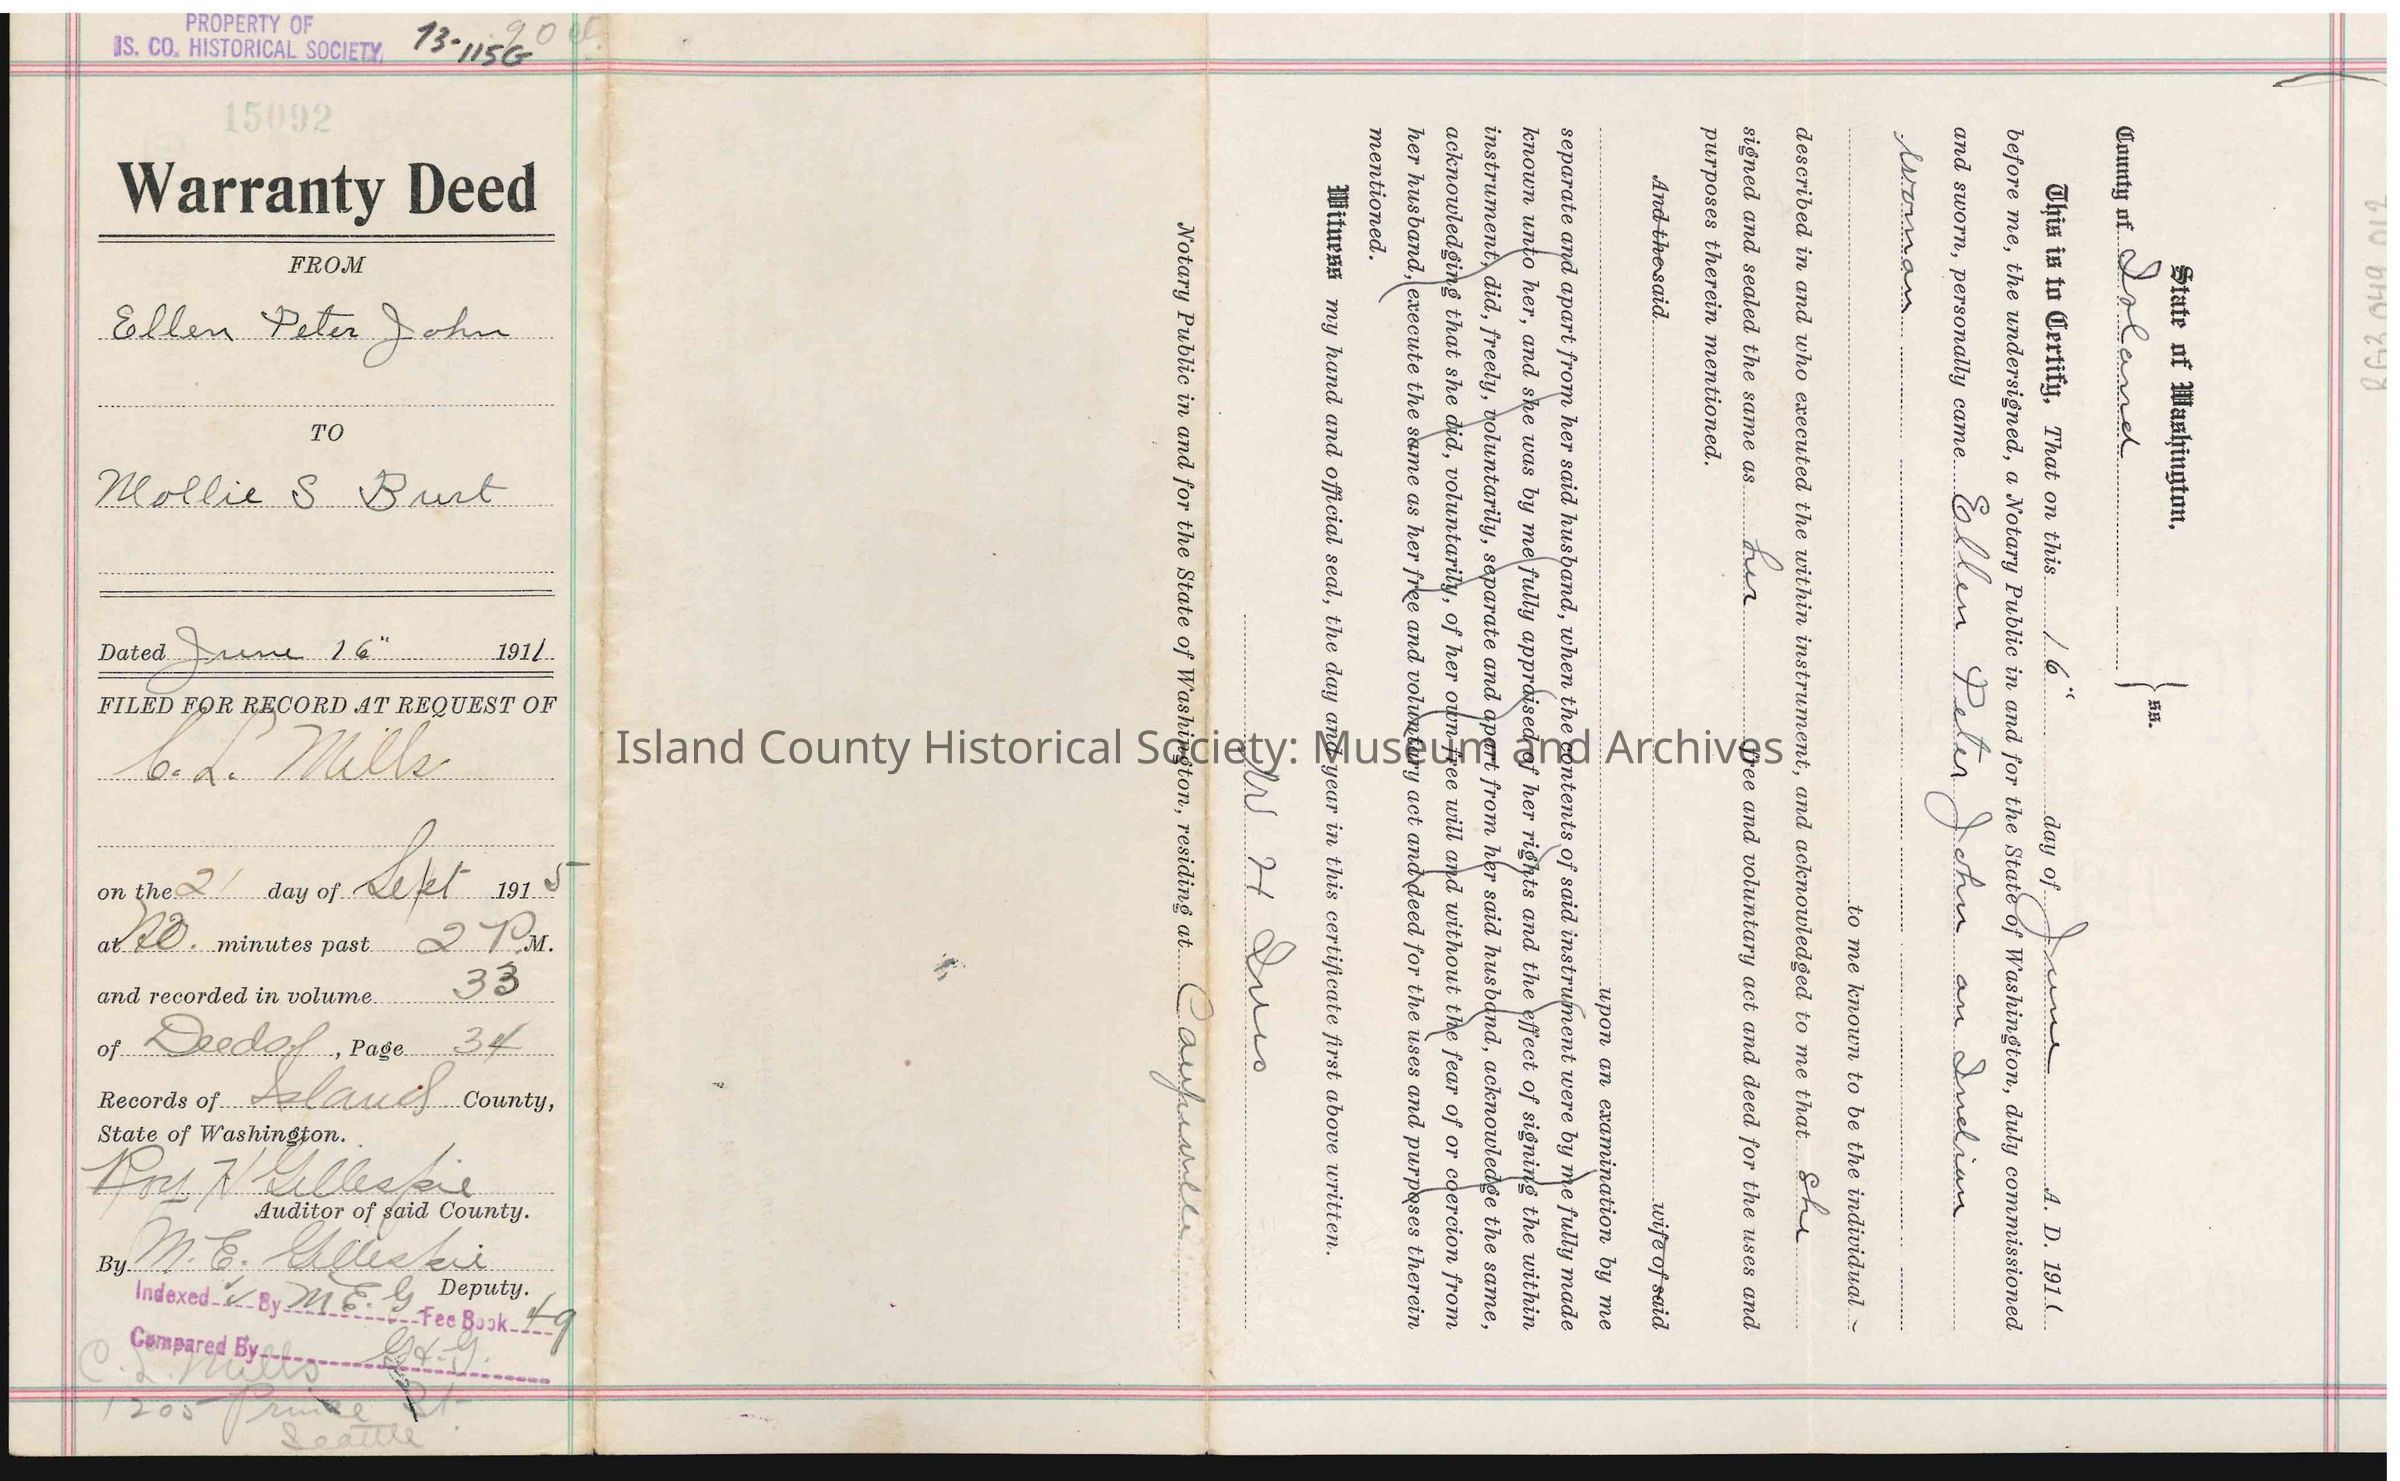 PROPERTY OF
IS. CO. HISTORICAL SOCIETY
73-115G
15092
Warranty Deed
FROM
Ellen Peter John
TO
Mollie S Burt
Dated June 16" 1911
FILED FOR RECORD AT REQUEST OF
C. L. Mills
on the 21 day of Sept 1915
at 20. minutes past 2 P.M.
and recorded in volume 33
of Deeds, Page 34
Records of Island County,
State of Washington.
Roy H Gilleskie
Auditor of said County.
By M. E. Gilleskie
Deputy.
Indexed By M.E.G. Fee Book 49
Compared By
C. L. Mills
1205 Prince St
Seattle
Island County Historical Society: Museum and Archives
State of Washington,
County of Island } ss.
This is to Certify, That on this 16" day of June A. D. 1911
before me, the undersigned, a Notary Public in and for the State of Washington, duly commissioned
and sworn, personally came Ellen Peter John an Indian
woman
to me known to be the individual
described in and who executed the within instrument, and acknowledged to me that She
signed and sealed the same as her free and voluntary act and deed for the uses and
purposes therein mentioned.
And the said wife of said
upon an examination by me
separate and apart from her said husband, when the contents of said instrument were by me fully made
known unto her, and she was by me fully apprised of her rights and the effect of signing the within
instrument, did, freely, voluntarily, separate and apart from her said husband, acknowledge the same,
acknowledging that she did, voluntarily, of her own free will and without the fear of or coercion from
her husband, execute the same as her free and voluntary act and deed for the uses and purposes therein
mentioned.
Witness my hand and official seal, the day and year in this certificate first above written.
Notary Public in and for the State of Washington, residing at Coupeville